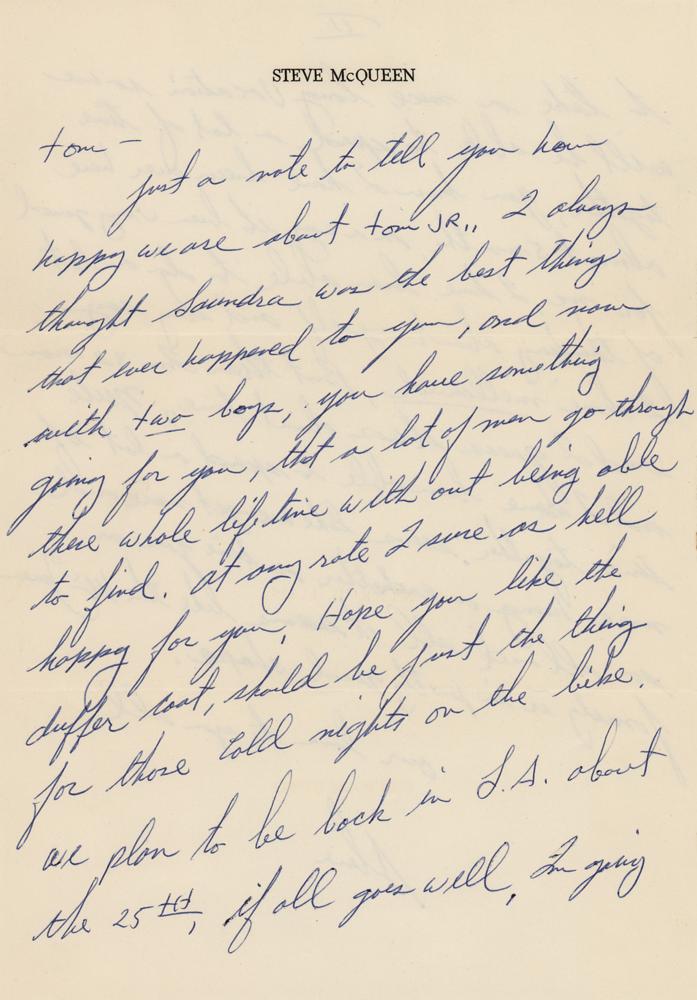 STEVE McQUEEN
tom —
just a note to tell you how
happy we are about tom JR., I always
thought Saundra was the best thing
that ever happened to you, and now
with two boys, you have something
going for you, that a lot of men go through
there whole life time with out being able
to find. at any rate I sure as hell
happy for you, Hope you like the
duffer coat, should be just the thing
for those cold nights on the bike.
we plan to be back in L.A. about
the 25TH, if all goes well, Im going